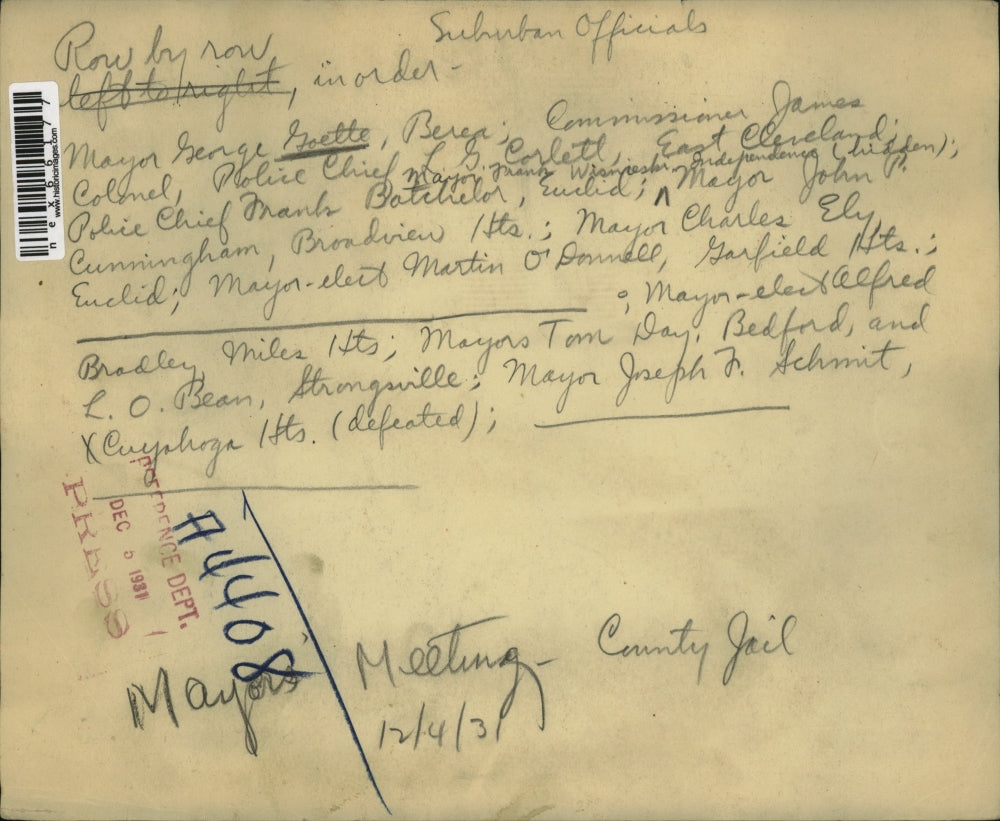 Suburban Officials
Row by row
left to right, in order -
Mayor George Goette, Berea; Commissioner James
Colonel, Police Chief L. G. Corlett, East Cleveland;
Mayor Frank Wisnieski Independence (hidden);
Police Chief Frank Batchelor, Euclid; ^ Mayor John P.
Cunningham, Broadview Hts.; Mayor Charles Ely,
Euclid; Mayor-elect Martin O'Donnell, Garfield Hts.;
; Mayor-elect Alfred
Bradley, Miles Hts; Mayors Tom Day, Bedford, and
L. O. Bean, Strongsville; Mayor Joseph F. Schmit,
X Cuyahoga Hts. (defeated);
REFERENCE DEPT.
DEC 5 1931
PRESS
A4408
Mayors' Meeting - County Jail
12/4/31
www.historicimages.com